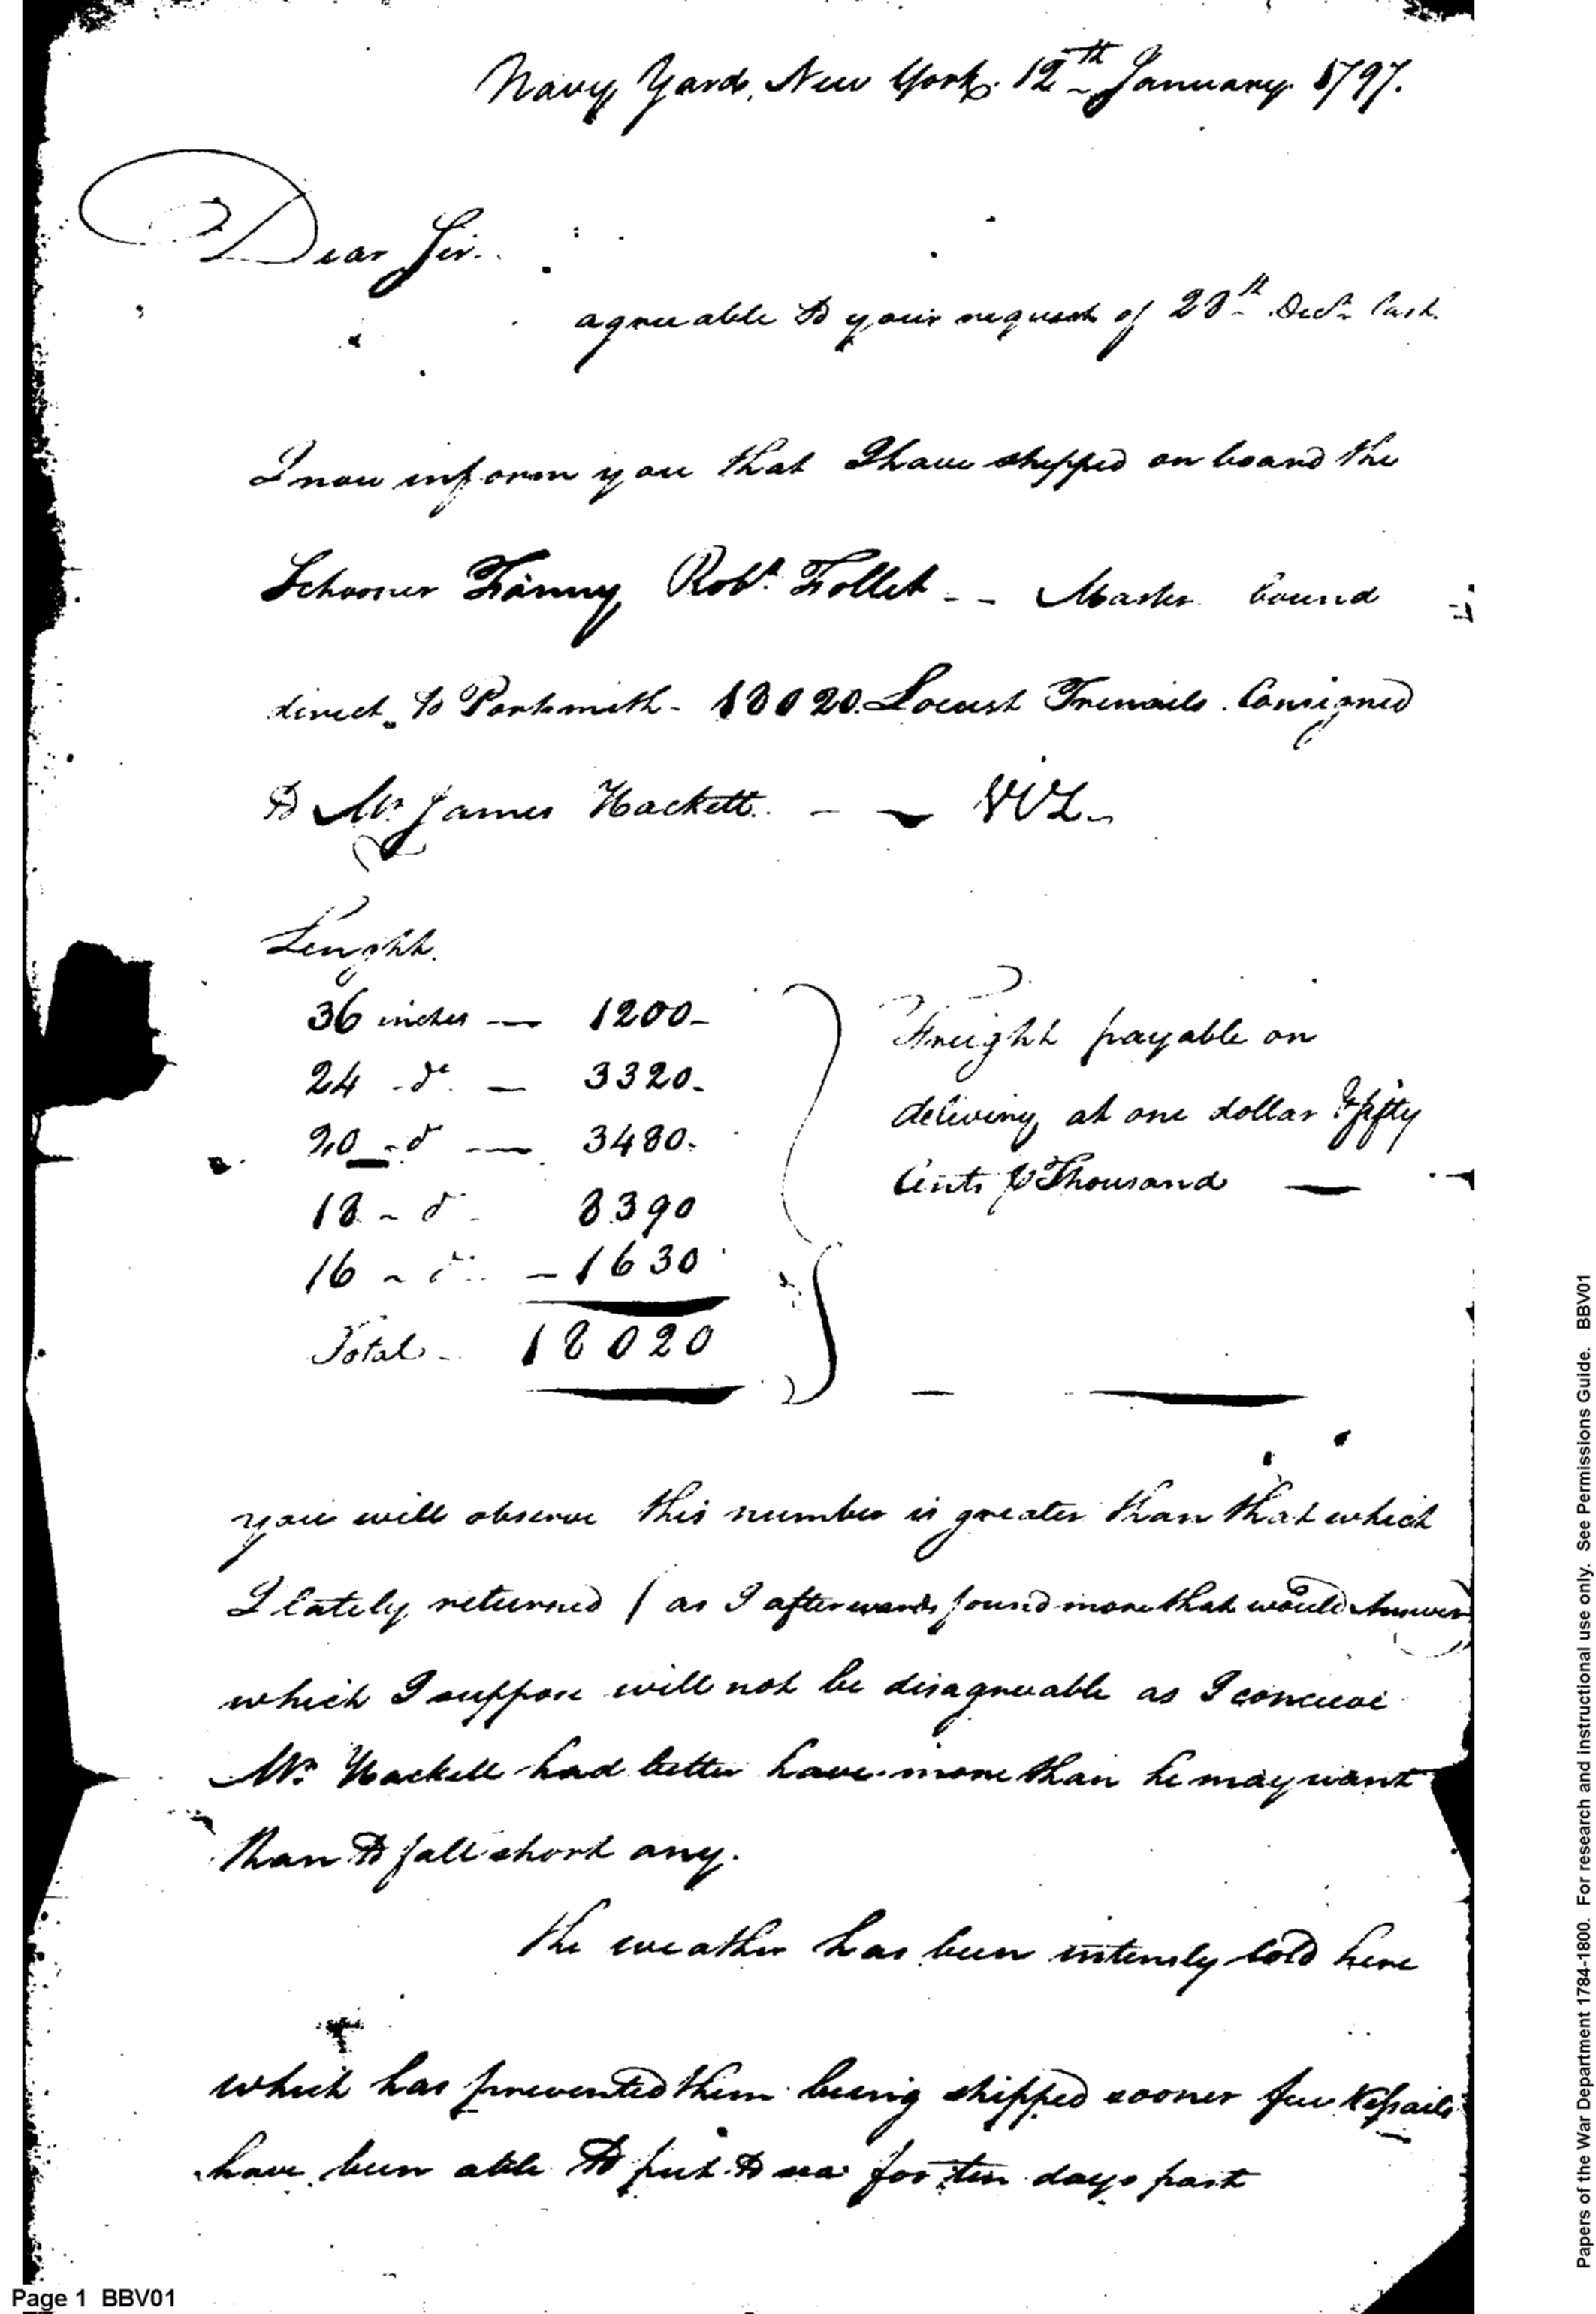 Navy Yard, New York. 12th January 1797.
Dear Sir.
agreeable to your request of 28th Decr last.
I now inform you that I have shipped on board the
Schooner Fanny Robt Follet -- Master bound
direct to Portsmith - 18020 Locust Trenails. Consigned
to Mr James Hackett. - - VIZ-
Lenght.
36 inches — 1200-
24 - do - 3320-
20 - do — 3480-
18 - do - 8390
16 - do - 1630
Total - 18020
Freight payable on
deliviny at one dollar & fifty
Cents P Thousand —
you will observe this number is greater than that which
I lately returned ( as I afterwards found more that would Answer)
which I suppose will not be disagreeable as I conceive
Mr Hackett had better have more than he may want
than to fall short any.
the weather has been intensly cold here
which has prevented them being shipped sooner few Vessails
have been able to put to sea for ten days past
Page 1 BBV01
Papers of the War Department 1784-1800. For research and instructional use only. See Permissions Guide. BBV01